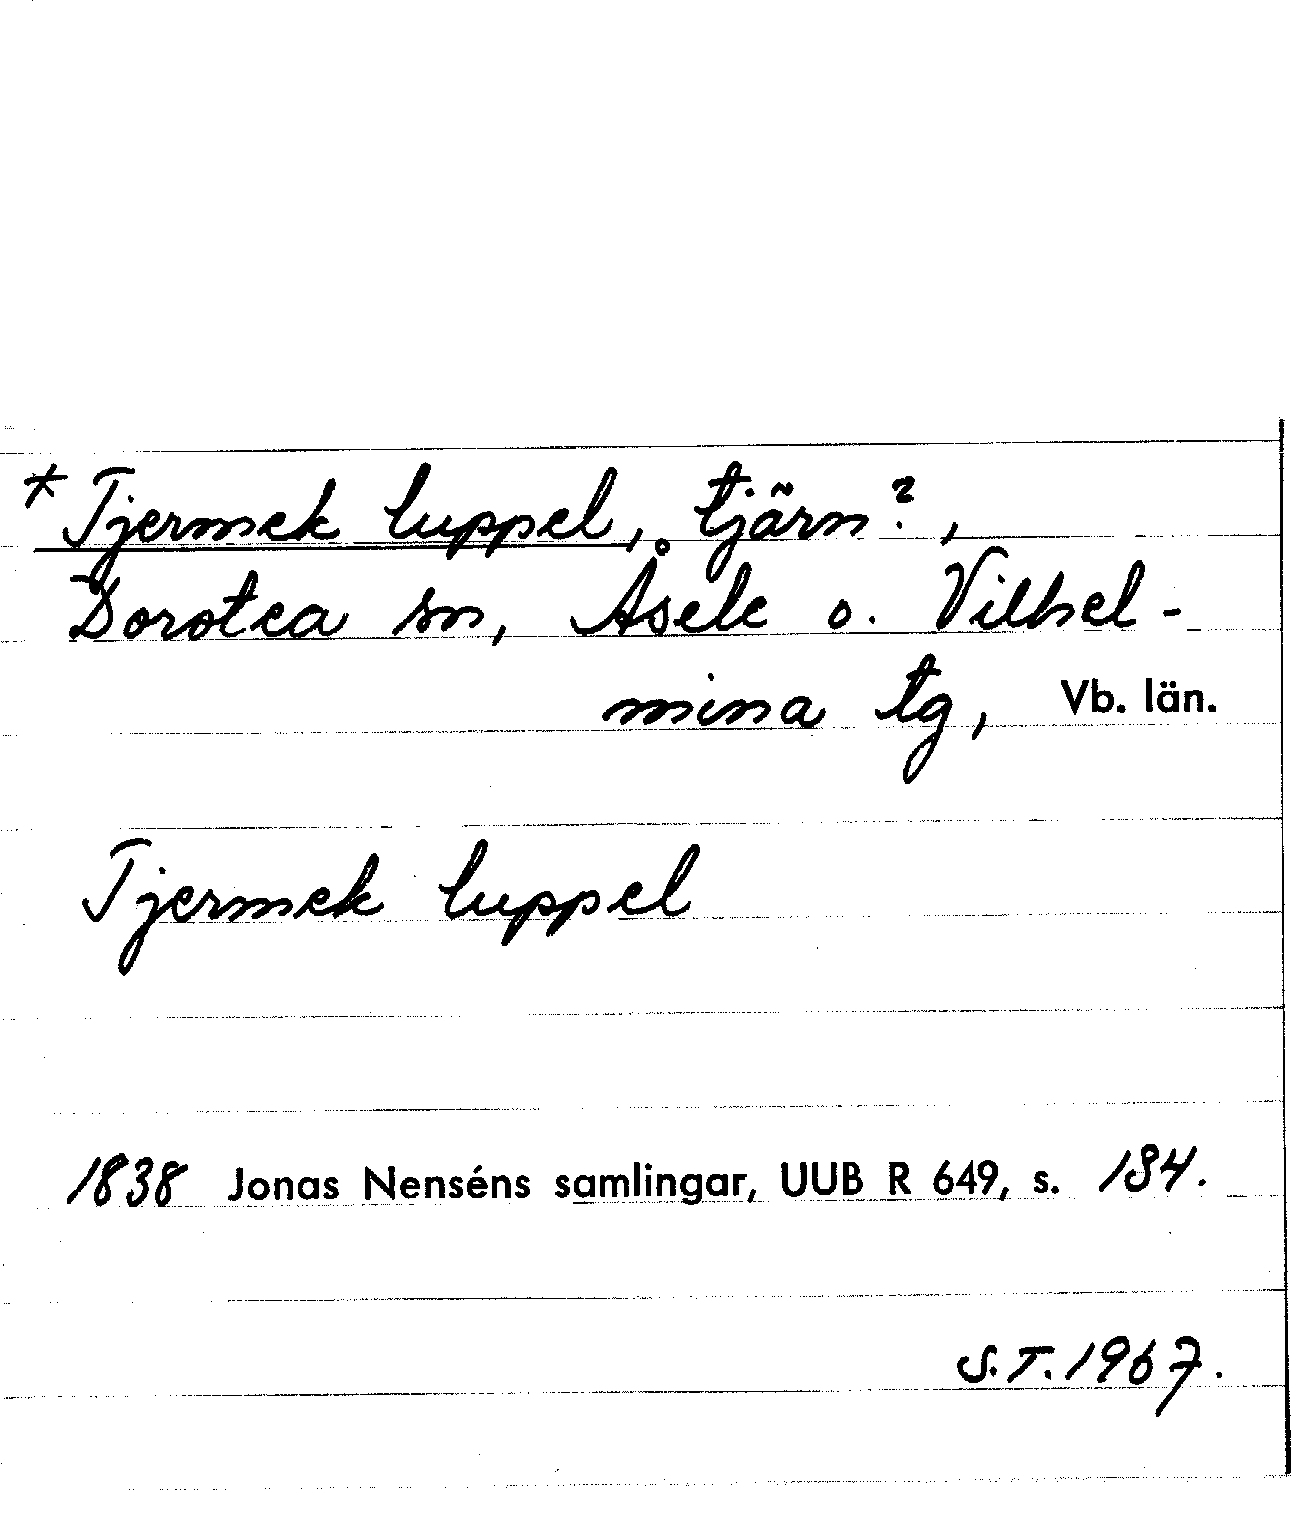 *Tjermek luppel, tjärn?,
Dorotea sn, Åsele o. Vilhel-
mina tg, Vb. län.
Tjermek luppel
1838 Jonas Nenséns samlingar, UUB R 649, s. 184.
S.T. 1967.